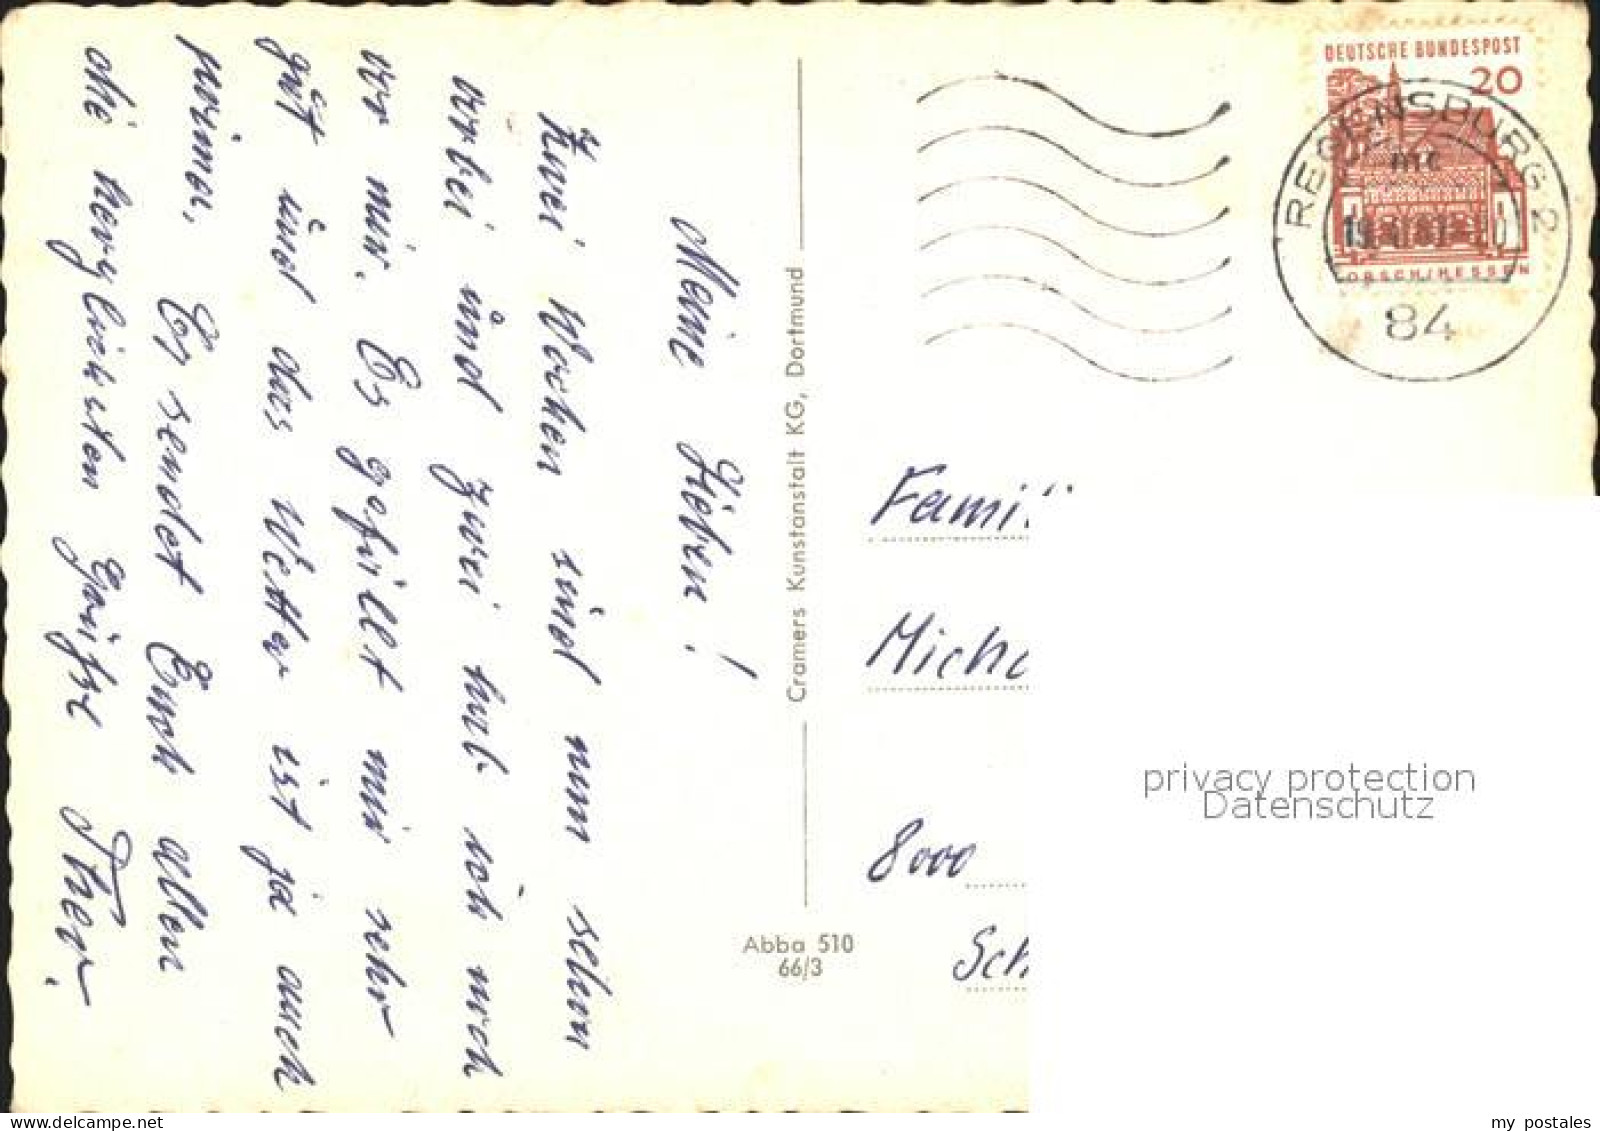 Meine Lieben!
Zwei Wochen sind nun schon
vorbei und zwei hab ich noch
vor mir. Es gefällt mir sehr
gut und das Wetter ist ja auch
prima. Es sendet Euch allen
die herzlichsten Grüße
Cramers Kunstanstalt KG, Dortmund
Abba 510
66/3
DEUTSCHE BUNDESPOST
20
LORSCH/HESSEN
REGENSBURG 2
84
Famil
Mich
8000
Sch
privacy protection
Datenschutz
my postales